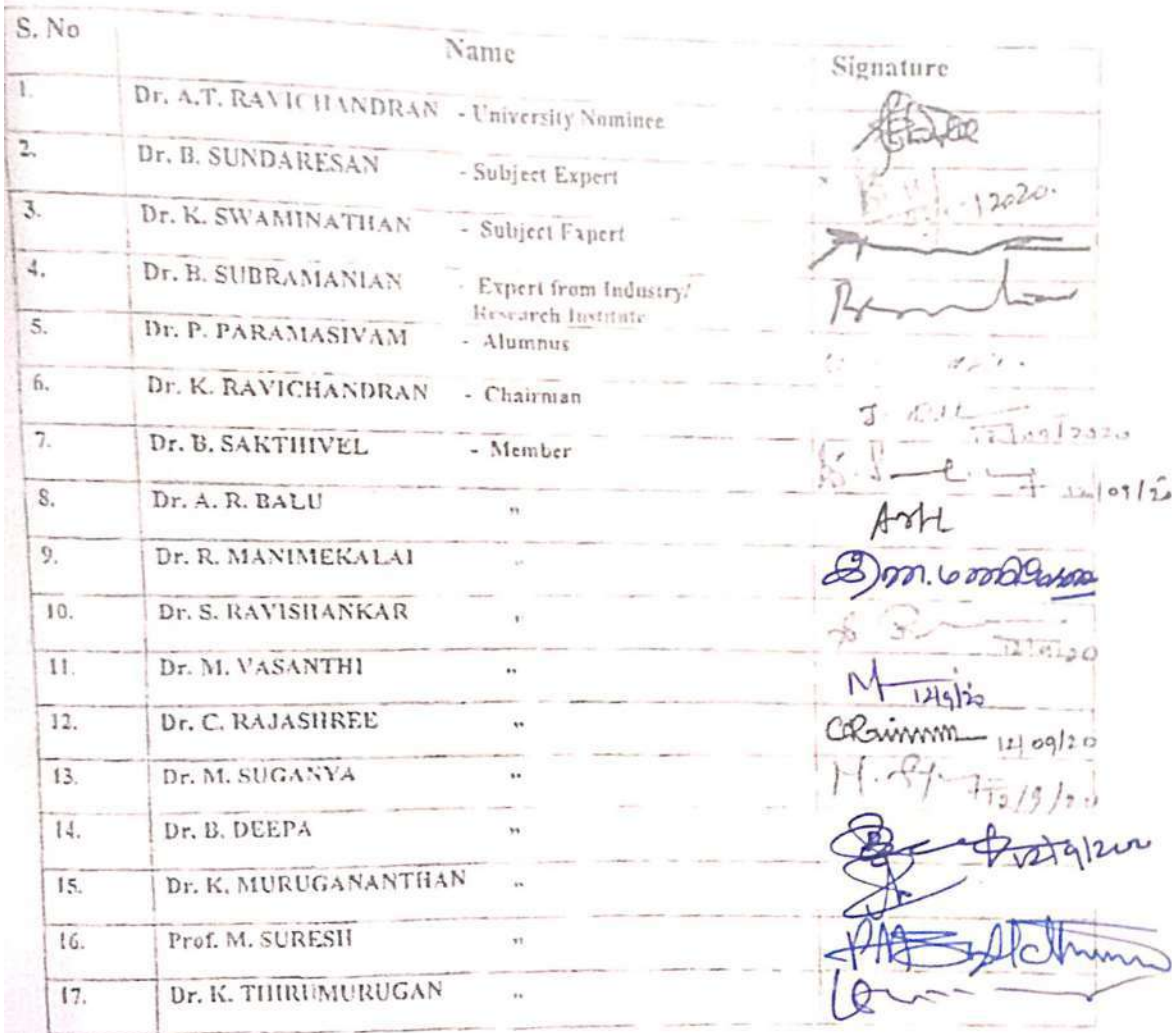 S. No Name Signature
1. Dr. A.T. RAVICHANDRAN - University Nominee
2. Dr. B. SUNDARESAN - Subject Expert 2020.
3. Dr. K. SWAMINATHAN - Subject Expert
4. Dr. B. SUBRAMANIAN - Expert from Industry/
Research Institute
5. Dr. P. PARAMASIVAM - Alumnus
6. Dr. K. RAVICHANDRAN - Chairman 12/09/2020
7. Dr. B. SAKTHIVEL - Member 12/09/20
8. Dr. A. R. BALU "
9. Dr. R. MANIMEKALAI "
10. Dr. S. RAVISHANKAR "
11. Dr. M. VASANTHI " 12/9/20
12. Dr. C. RAJASHREE " 12/09/20
13. Dr. M. SUGANYA " 12/9/20
14. Dr. B. DEEPA "
15. Dr. K. MURUGANANTHAN "
16. Prof. M. SURESH "
17. Dr. K. THIRUMURUGAN "